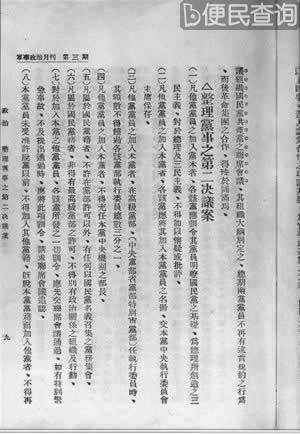 便民查询
軍事政治月刊 第三期
議組織國民黨共產黨聯席會議、其組織大綱別定之、總期兩黨黨員不再有違背規約之行為
而後革命集團之合作、得殊於圓滿焉、
△整理黨事之第二決議案
(一)凡他黨黨員之加入本黨者、各該黨應訓令其黨員明瞭國民黨之基礎、為總理所創造之三
民主義、對於總理及三民主義、不得加以懷疑或批評、
(二)凡他黨黨員之加入本黨者、各該黨應將其加入本黨黨員之名冊、交本黨中央執行委員會
主席保存、
(三)凡他黨黨員之加入本黨者、在高級黨部、(中央黨部省黨部特別市黨部)任執行委員時、
其額數不得超過各該黨部執行委員總數三分之一、
(四)凡他黨黨員之加入本黨者、不得充任本黨中央機關之部長、
(五)凡屬於國民黨籍者、不許在黨部許可以外、有任何以國民黨名義召集之黨務集會、
(六)凡屬於國民黨籍者、非得有最高級黨部之許可、不得別有政治關係之組織及行動、
(七)對於加入本黨之他黨黨員、各該黨所發之一切訓令、應先交聯席會議通過、如有特別緊
急事故、不及提出通過時、應將此項訓令、請求聯席會議追認、
(八)本黨黨員未受准許脫黨以前、不得加入其他黨籍、既脫本黨黨籍而加入他黨者、不得再
政治 整理黨事之第二決議案
九